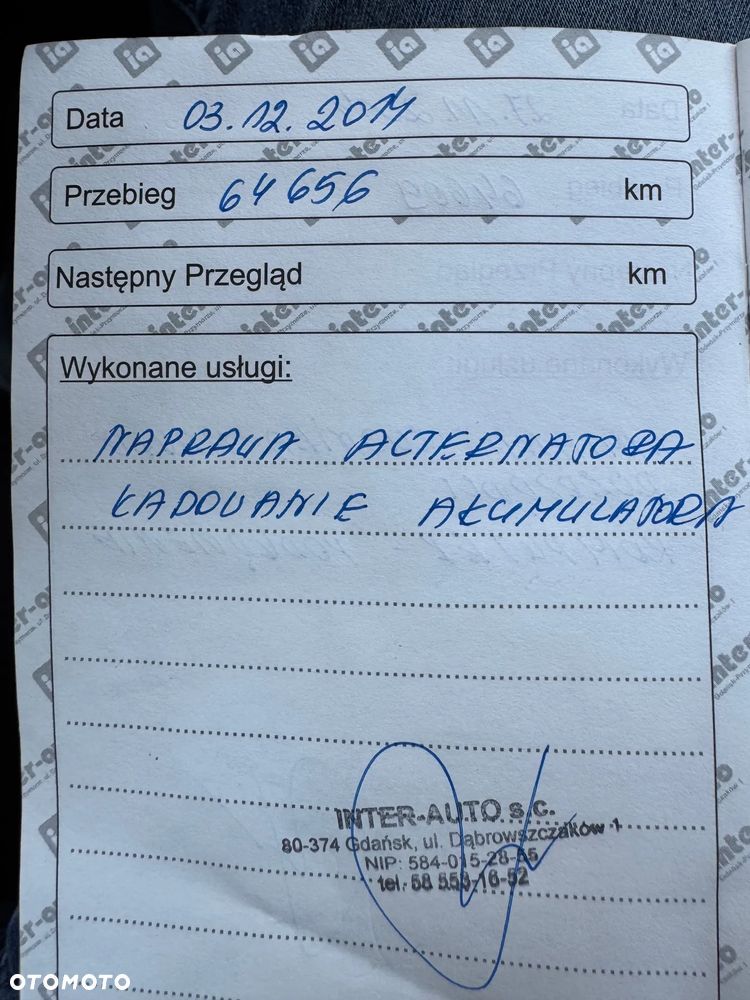 Data 03.12.2014
Przebieg 64 656 km
Następny Przegląd km
Wykonane usługi:
NAPRAWA ALTERNATORA
ŁADOWANIE AKUMULATORA
INTER-AUTO s.c.
80-374 Gdańsk, ul. Dąbrowszczaków 1
NIP: 584-015-28-55
tel. 58 553-16-52
OTOMOTO